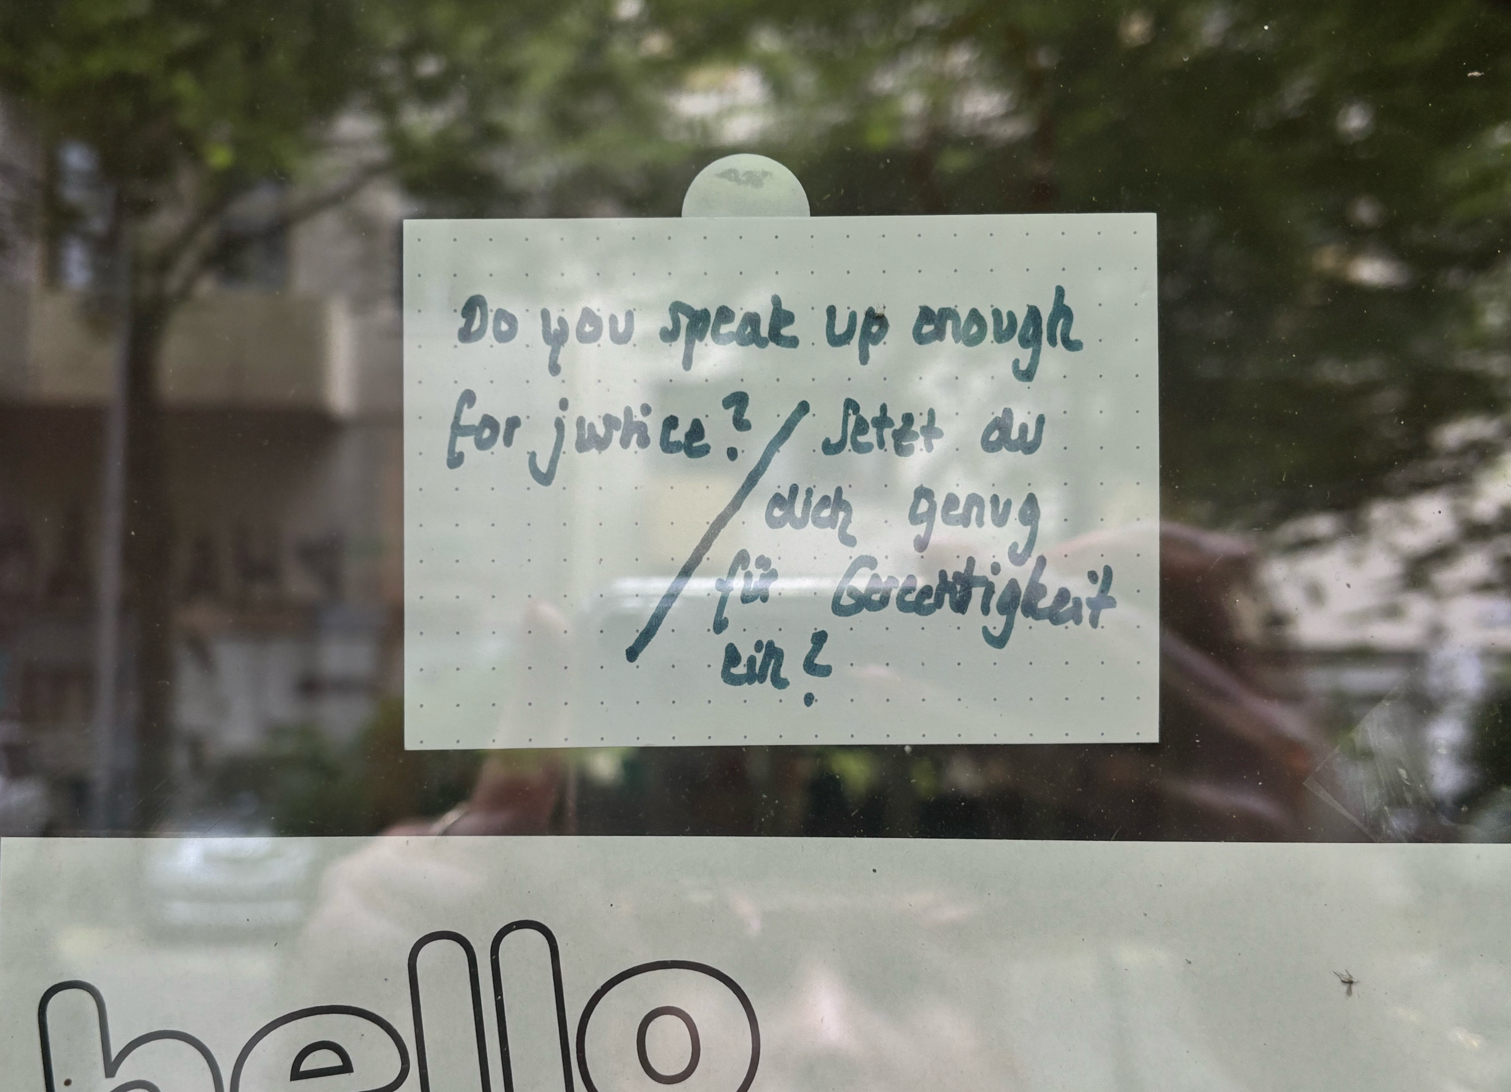 Do you speak up enough
for justice? / Setzt du
dich genug
für Gerechtigkeit
ein?
hello